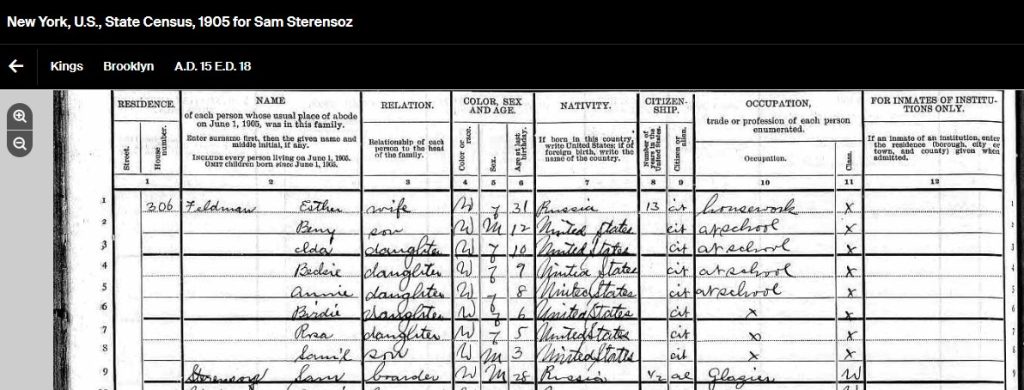 New York, U.S., State Census, 1905 for Sam Sterensoz
Kings Brooklyn A.D. 15 E.D. 18
RESIDENCE. NAME RELATION. COLOR, SEX AND AGE. NATIVITY. CITIZENSHIP. OCCUPATION, FOR INMATES OF INSTITUTIONS ONLY.
of each person whose usual place of abode on June 1, 1905, was in this family.
trade or profession of each person enumerated.
Enter surname first, then the given name and middle initial, if any.
Relationship of each person to the head of the family.
If born in this country, write United States; if of foreign birth, write the name of the country.
If an inmate of an institution, enter the residence (borough, city or town, and county) given when admitted.
INCLUDE every person living on June 1, 1905.
OMIT children born since June 1, 1905.
Street. House number. Color or race. Sex. Age at last birthday. Number of years in the United States. Citizen or alien. Occupation. Class.
1 2 3 4 5 6 7 8 9 10 11 12
1 306 Feldman Esther wife W f 31 Russia 13 cit housework X 1
2 Beny son W M 12 United States cit at school X 2
3 Ida daughter W f 10 United States cit at school X 3
4 daughter W f 9 United States cit at school X 4
5 Annie daughter W f 8 United States cit at school X 5
6 Birdie daughter W f 6 United States cit X X 6
7 Rosa daughter W f 5 United States cit X X 7
8 Sam'l son W M 3 United States cit X X 8
9 Sam boarder W M 28 Russia 1/2 al Glazier W 9